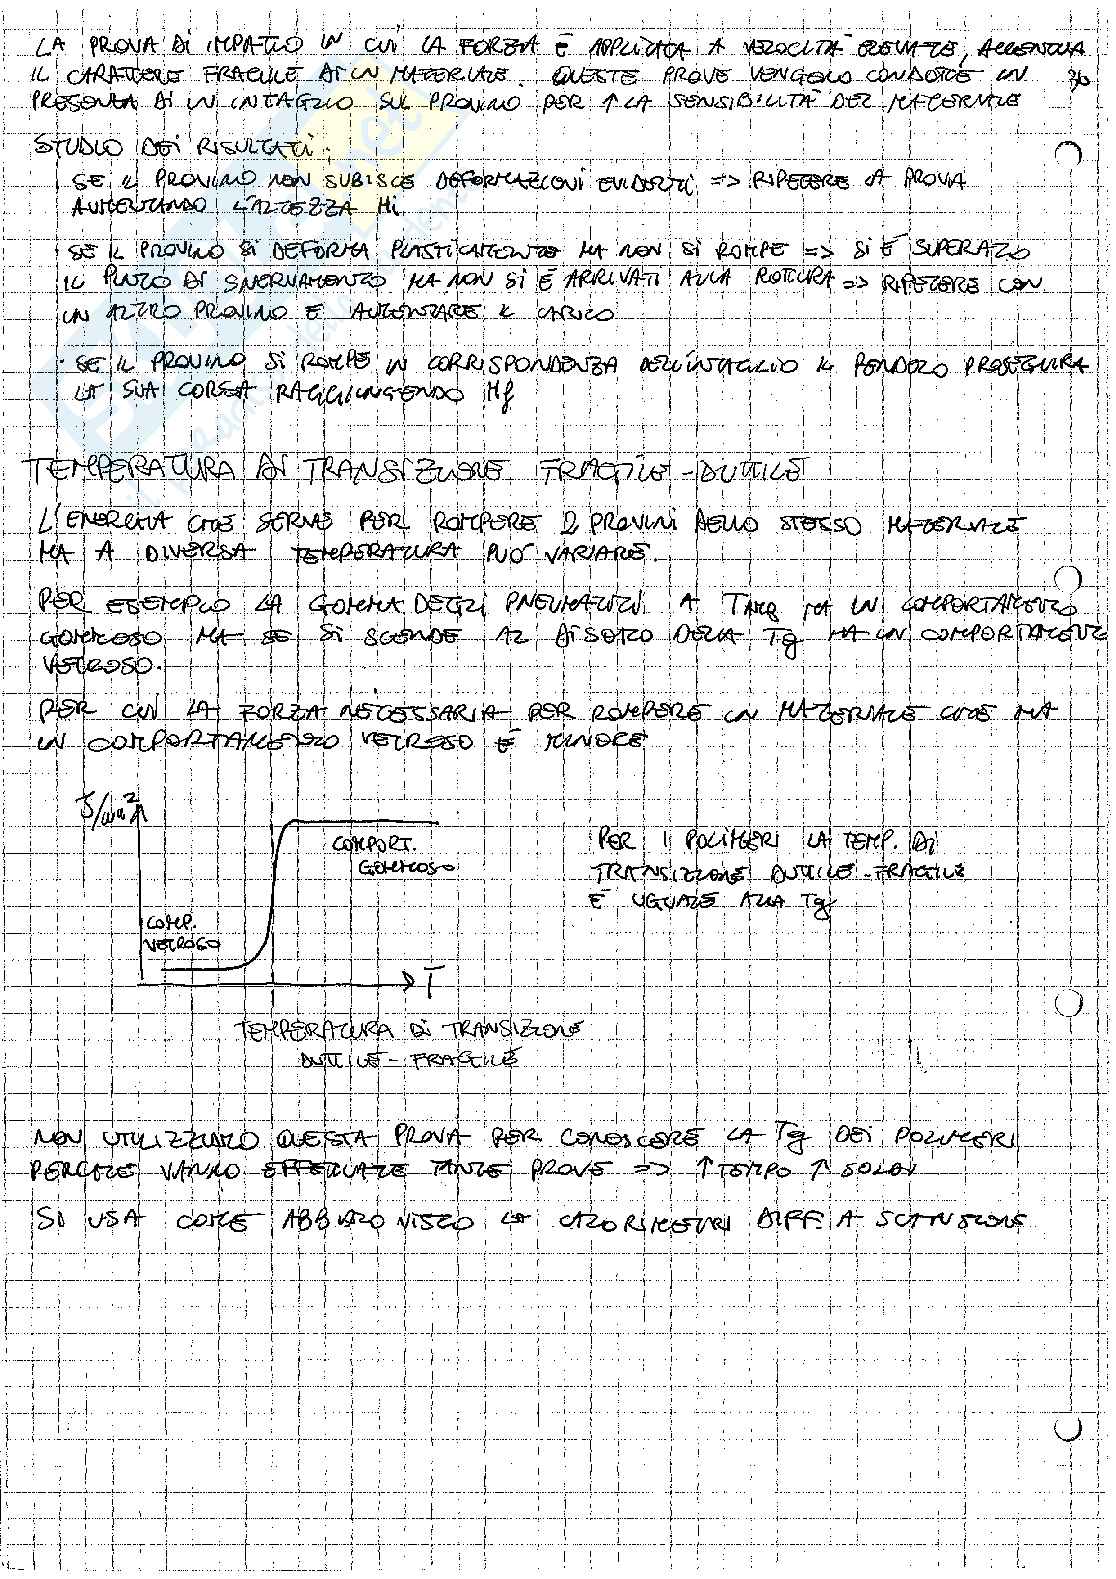 LA PROVA DI IMPATTO IN CUI LA FORZA È APPLICATA A VELOCITÀ ELEVATE, ACCENTUA
IL CARATTERE FRAGILE DI UN MATERIALE. QUESTE PROVE VENGONO CONDOTTE IN
PRESENZA DI UN INTAGLIO SUL PROVINO PER ↑ LA SENSIBILITÀ DEL MATERIALE
STUDIO DEI RISULTATI:
SE IL PROVINO NON SUBISCE DEFORMAZIONI EVIDENTI => RIPETERE LA PROVA
AUMENTANDO L'ALTEZZA Hi
SE IL PROVINO SI DEFORMA PLASTICAMENTE MA NON SI ROMPE => SI È SUPERATO
IL PUNTO DI SNERVAMENTO MA NON SI È ARRIVATI ALLA ROTTURA => RIPETERE CON
UN ALTRO PROVINO E AUMENTARE IL CARICO
· SE IL PROVINO SI ROMPE IN CORRISPONDENZA DELL'INTAGLIO IL PENDOLO PROSEGUIRA
LA SUA CORSA RAGGIUNGENDO Hf
TEMPERATURA DI TRANSIZIONE FRAGILE-DUTTILE
L'ENERGIA CHE SERVE PER ROMPERE 2 PROVINI DELLO STESSO MATERIALE
MA A DIVERSA TEMPERATURA PUÒ VARIARE.
PER ESEMPIO LA GOMMA DEGLI PNEUMATICI A Tamb HA UN COMPORTAMENTO
GOMMOSO MA SE SI SCENDE AL DI SOTTO DELLA Tg HA UN COMPORTAMENTO
VETROSO.
PER CUI LA FORZA NECESSARIA PER ROMPERE UN MATERIALE CHE HA
UN COMPORTAMENTO VETROSO È MINORE
J/mm²
COMPORT.
GOMMOSO
COMP.
VETROSO
T
PER I POLIMERI LA TEMP. DI
TRANSIZIONE DUTTILE-FRAGILE
È UGUALE ALLA Tg
TEMPERATURA DI TRANSIZIONE
DUTTILE-FRAGILE
NON UTILIZZIAMO QUESTA PROVA PER CONOSCERE LA Tg DEI POLIMERI
PERCHÈ VANNO EFFETTUATE TANTE PROVE => ↑ TEMPO ↑ SOLDI
SI USA COME ABBIAMO VISTO LA CALORIMETRI DIFF. A SCANSIONE